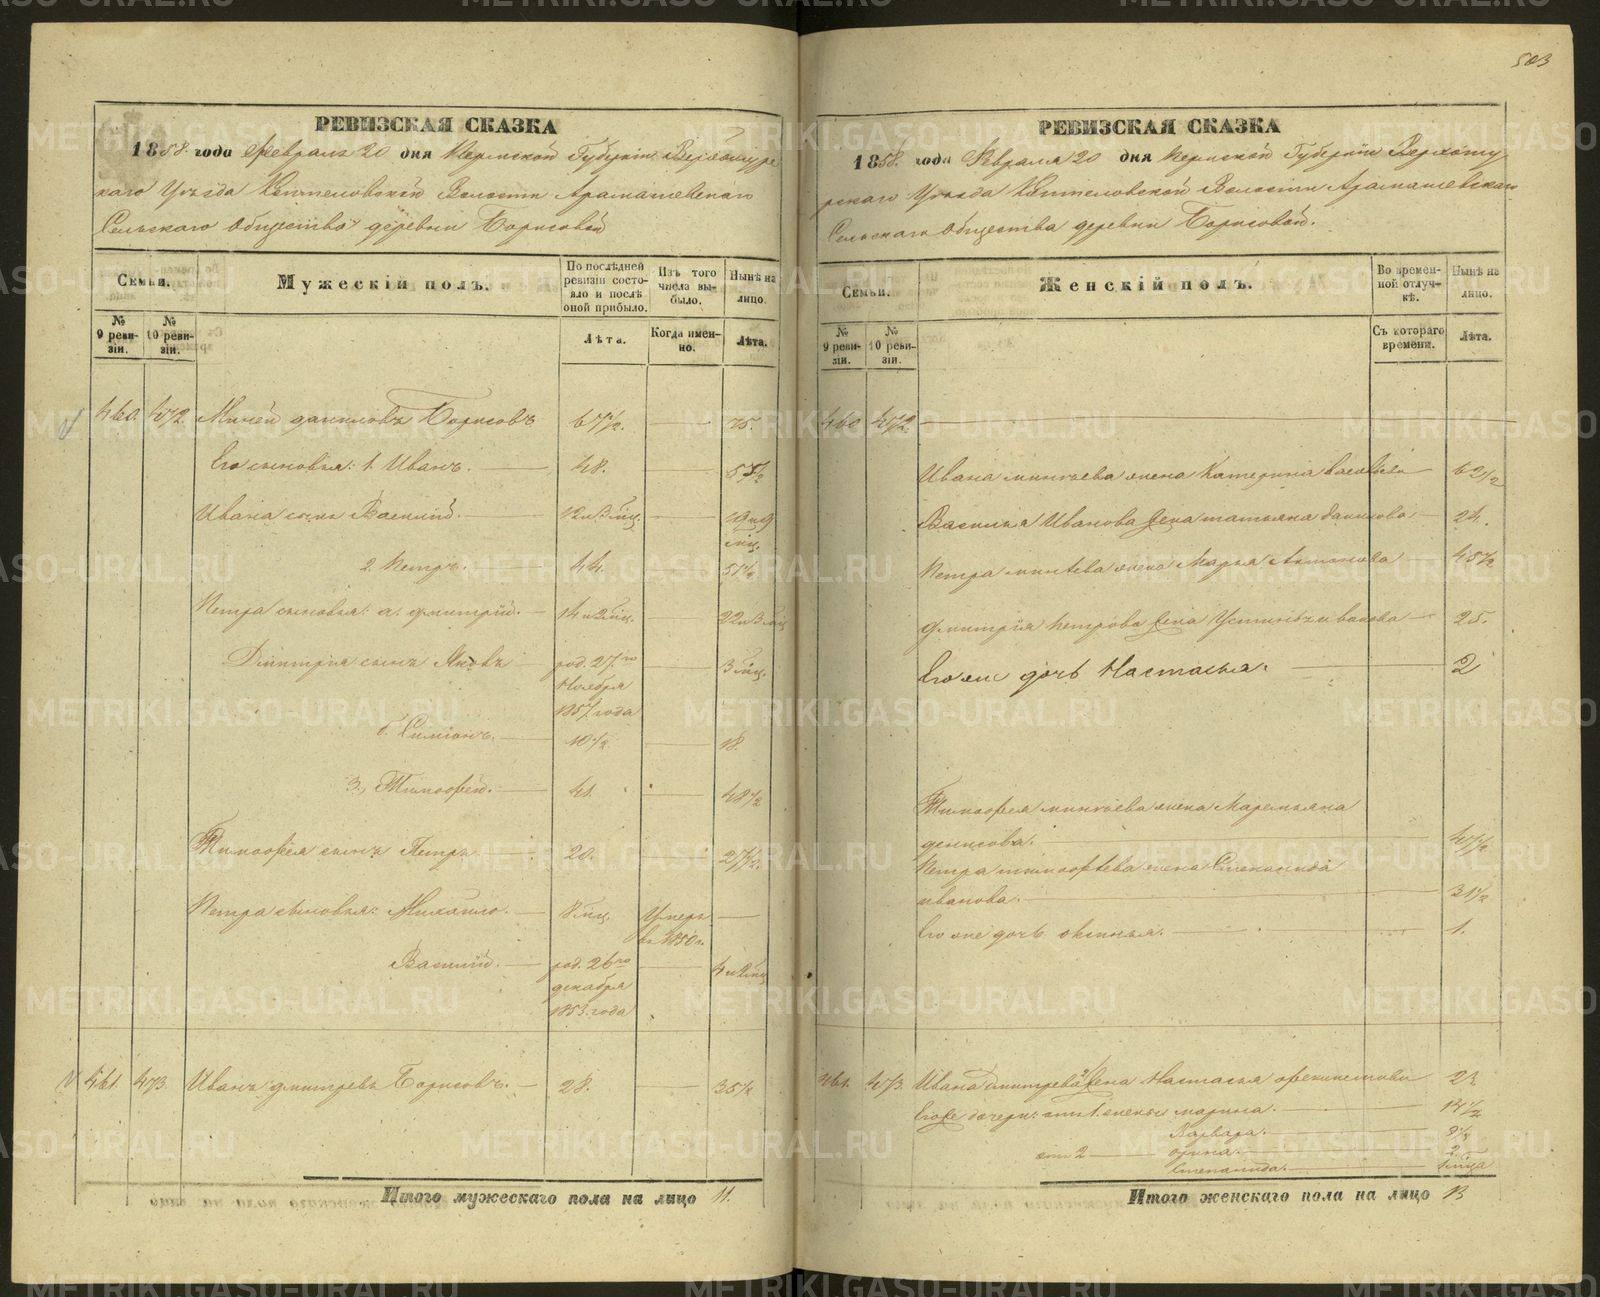 503
РЕВИЗСКАЯ СКАЗКА
1858. года Февраля 20 дня Пермской Губернiи Верхотур
скаго Уѣзда Коптеловской Волости Арамашевскаго
Сельскаго Общества деревни Борисовой
Семьи.
Мужескiй полъ.
По послѣдней ревизiи состо-
яло и послѣ оной прибыло.
Изъ того числа вы-
было.
Нынѣ на лицо.
№ 9 реви-
зiи.
№ 10 реви-
зiи.
Лѣта.
Когда имен-
но.
Лѣта.
460. 472. Миней Даниловъ Борисовъ 67½. 75.
Его сыновья: 1. Иванъ. 48. 55½
Ивана сынъ Василiй. 12 и 3 мц. 19 и 9 мц.
2. Петръ. 44. 51½
Петра сыновья: а. Дмитрiй. 14 и 2 мц. 22 и 3 мц
Дмитрiя сынъ Яковъ род. 27го Ноября 1857 года 3 мц.
б. Симiонъ. 10½ 18.
3., Тимофей. 41. 48½
Тимофея сынъ Петръ 20. 27½.
Петра сыновья: Михайло. 8 мц. Умеръ въ 1850 г.
Василiй. род. 26го декабря 1853. года 4 и 2 мц
461. 473. Иванъ Дмитревъ Борисовъ. 28. 35½
Итого мужескаго пола на лицо 11.
РЕВИЗСКАЯ СКАЗКА
1858. года Февраля 20 дня Пермской Губернiи Верхоту
рскаго Уѣзда Коптеловской Волости Арамашевскаго
Сельскаго Общества деревни Борисовой.
Семьи.
Женскiй полъ.
Во времен-
ной отлуч-
кѣ.
Нынѣ на лицо.
№ 9 реви-
зiи.
№ 10 реви-
зiи.
Съ котораго времени.
Лѣта.
460 472.
Ивана Минѣева жена Катерина 62½
Василья Иванова жена Татьяна Данилова 24.
Петра Минѣева жена Марья Антонова 45½
Дмитрiя Петрова жена Устинья Иванова 25.
Его же дочь Настасья. 2
Тимофея Минѣева жена Маремьяна
Денисова. 47½
Петра Тимофѣева жена Степанида
Иванова. 31½
Его же дочь Оксинья. 1.
461. 473. Ивана Дмитрева 2 жена Настасья
Его же дочери: отъ 1 жены Марина. 14½
Варвара. 9½
отъ 2 Орина. 2
Степанида. 1 мца
Итого женскаго пола на лицо 13
METRIKI.GASO-URAL.RU